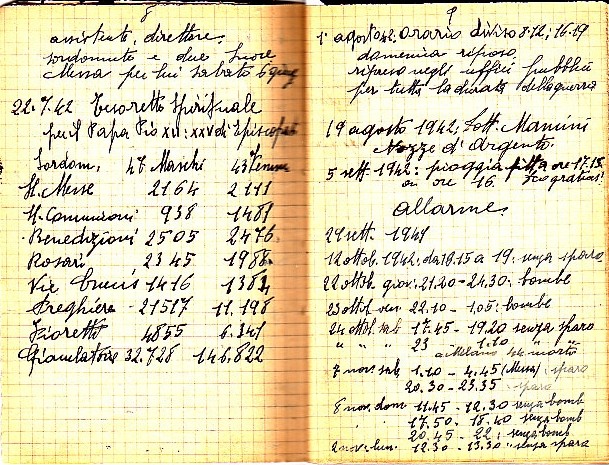 8
assistente, direttore,
sordomuto e due suore
Messa per lui sabato 6 giug
22.7.42 Tesoretto Spirituale
per il Papa Pio XII: XXV di Episcopato
Sordom. 47 Maschi 43 Femm
SS. Messe 2164 2111
SS. Comunioni 938 1481
Benedizioni 2505 2476
Rosari 2345 1988
Vie Crucis 1416 1384
Preghiere 21517 11.198
Fioretti 4855 6.341
Giaculatorie 32.728 146.822
9
1° agosto 42, orario diviso 8.12; 16.19
domenica riposo,
ripreso negli uffici pubblici
per tutta la durata della guerra
19 agosto 1942, Dott. Mannini
Nozze d'Argento.
5 sett. 1942: pioggia fitta ore 17.15
on ore 16. Deo gratias!
Allarme
29 sett. 1941
12 ottob. 1942: da 18.15 a 19: senza sparo
22 ottob. giov: 21.20 - 24.30: bombe
23 ottob ven 22.10 - 1.05: bombe
24 ottob sab 17.45 - 19.20 senza sparo
" " " 23 - 1.10 " "
a Milano morti
7 nov. sab. 1.10 - 4.45 (Messa) sparo
20.30 - 23.35 sparo
8 nov. dom 11.45 - 12.30 senza bomb
17.50 - 18.40 senza bomb
20.45 - 22: senza bomb
nov. lun. 12.30 - 13.30 senza sparo